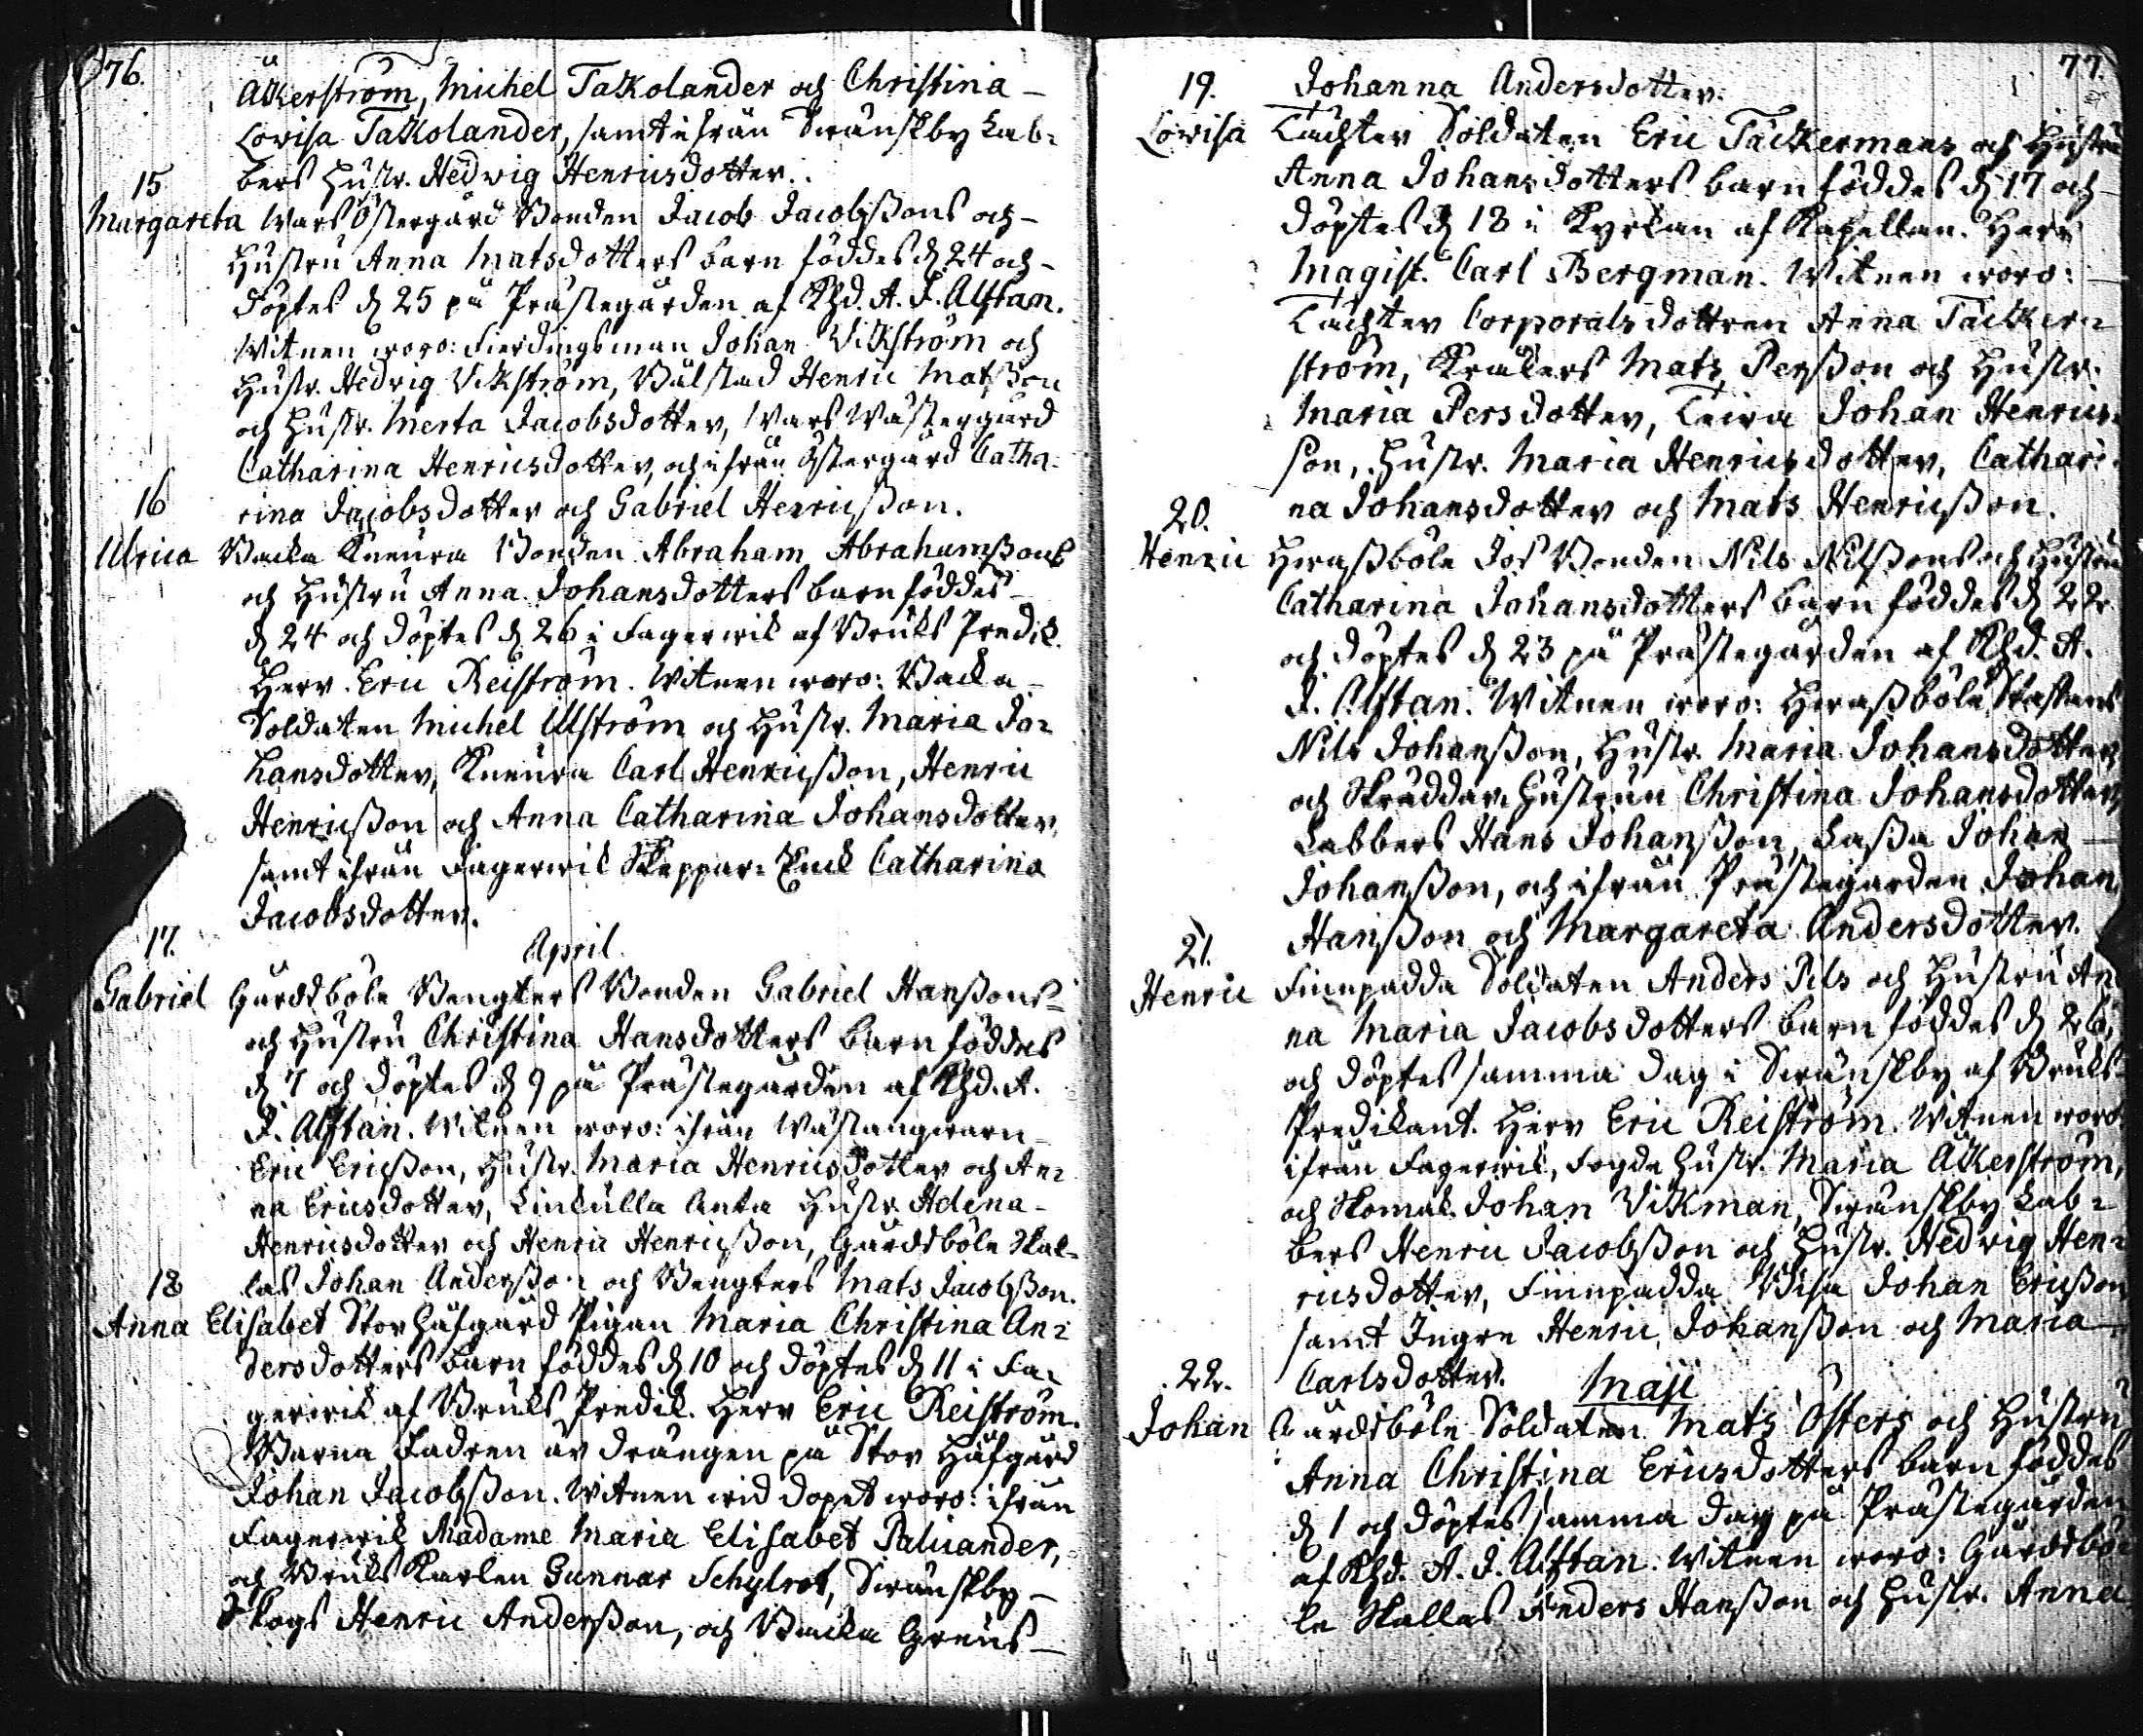 76.
Åkerström, Michel Takolander och Christina –
Lovisa Takolander, samt ifrån Swänskby Lab=
bers Hustr. Hedvig Henricsdotter.
15
Margareta Wars Östergård Bonden Jacob Jacobßons och –
Hustru Anna Matsdotters barn föddes d. 24 och –
döptes d. 25 på Prästegården af Khd. A. J. Alftan.
Witnen woro: Fierdingsman Johan Vikström och
Hustr. Hedvig Vikström, Bålstad Henric Matßon
och Hustr. Merta Jacobsdotter, Wars Wästergård
Catharina Henricsdotter, och ifrån Östergård Catha=
16
rina Jacobsdotter och Gabriel Henricßon.
Ulrica Backa Kneura Bonden Abraham Abrahamßons
och Hustru Anna Johansdotters barn föddes –
d. 24 och döptes d. 26 i Fagerwik af Bruks Predik.
Herr Eric Reiström. Witnen woro: Backa –
Soldaten Michel Ulström och Hustr. Maria Jo=
hansdotter, Kneura Carl Henricßon, Henric
Henricßon och Anna Catharina Johansdotter,
samt ifrån Fagerwik Skeppar= Enck Catharina
Jacobsdotter.
17.
April
Gabriel Gårdsböle Bengters Bonden Gabriel Hanßons
och Hustru Christina Hansdotters barn föddes
d. 7 och döptes d. 9 på Prästegården af Khd. A.
J. Alftan. Witnen woro: ifrån Wästangwarn –
Eric Ericßon, Hustr. Maria Henricsdotter och An=
na Ericsdotter, Linkulla Anta Hustr. Helena –
Henricsdotter och Henric Henricßon, Gårdsböle Skal=
18
las Johan Anderßon och Bengters Mats Jacobßon.
Anna Elisabet Stor Håfgård Pigan Maria Christina An=
dersdotters barn föddes d. 10 och döptes d. 11 i Fa=
gerwik af Bruks Predik. Herr Eric Reiström.
Barna Fadren är drängen på Stor Håfgård
Johan Jacobßon. Witnen wid dopet woro: ifrån
Fagerwik Madame Maria Elisabet Paluander,
och Bruks Karlen Gunnar Schylrot, Swänskby –
Skogs Henric Anderßon, och Backa Greus –
77.
19.
Johanna Andersdotter.
Lovisa Täckter Soldaten Eric Täckermans och Hustru
Anna Johansdotters barn föddes d. 17 och –
döptes d. 18 i Kyrkan af Kapellan. Herr
Magist. Carl Bergman. Witnen woro: –
Täckter Corporals dottren Anna Täcker=
ström, Krakers Mats Perßon och Hustr.
Maria Persdotter, Leira Johan Henrics=
son, Hustr. Maria Henricsdotter, Cathari=
20.
na Johansdotter och Mats Henricßon.
Henric Heraßböle Jos Bonden Nils Nilßons och Hustru
Catharina Johansdotters barn föddes d. 22
och döptes d. 23 på Prästegården af Khd. A.
J. Alftan. Witnen woro: Heraßböle Staffans
Nils Johanßon, Hustr. Maria Johansdotter,
och Skräddar Hustrun Christina Johansdotter,
Labbers Hans Johanßon, Laßa Johan –
Johanßon, och ifrån Prästegården Johan
Hanßon och Margareta Andersdotter.
21.
Henric Finnpadda Soldaten Anders Pils och Hustru An
na Maria Jacobsdotters barn föddes d. 26,
och döptes samma dag i Swänskby af Bruks
Predikant. Herr Eric Reiström. Witnen woro
ifrån Fagerwik, Fogde Hustr. Maria Åkerström,
och Skomak. Johan Vikman, Swänskby Lab=
bers Henric Jacobßon och Hustr. Hedvig Hen=
ricsdotter, Finnpadda Johan Ericßon
samt Ingre Henric Johanßon och Maria –
22.
Carlsdotter.
Maji
Johan Gårdsböle Soldaten Mats Östers och Hustru
Anna Christina Ericsdotters barn föddes
d. 1 och döptes samma dag på Prästegården
af Khd. A. J. Alftan. Witnen woro: Gårdsbö
le Skallas Anders Hanßon och Hustr. Anna